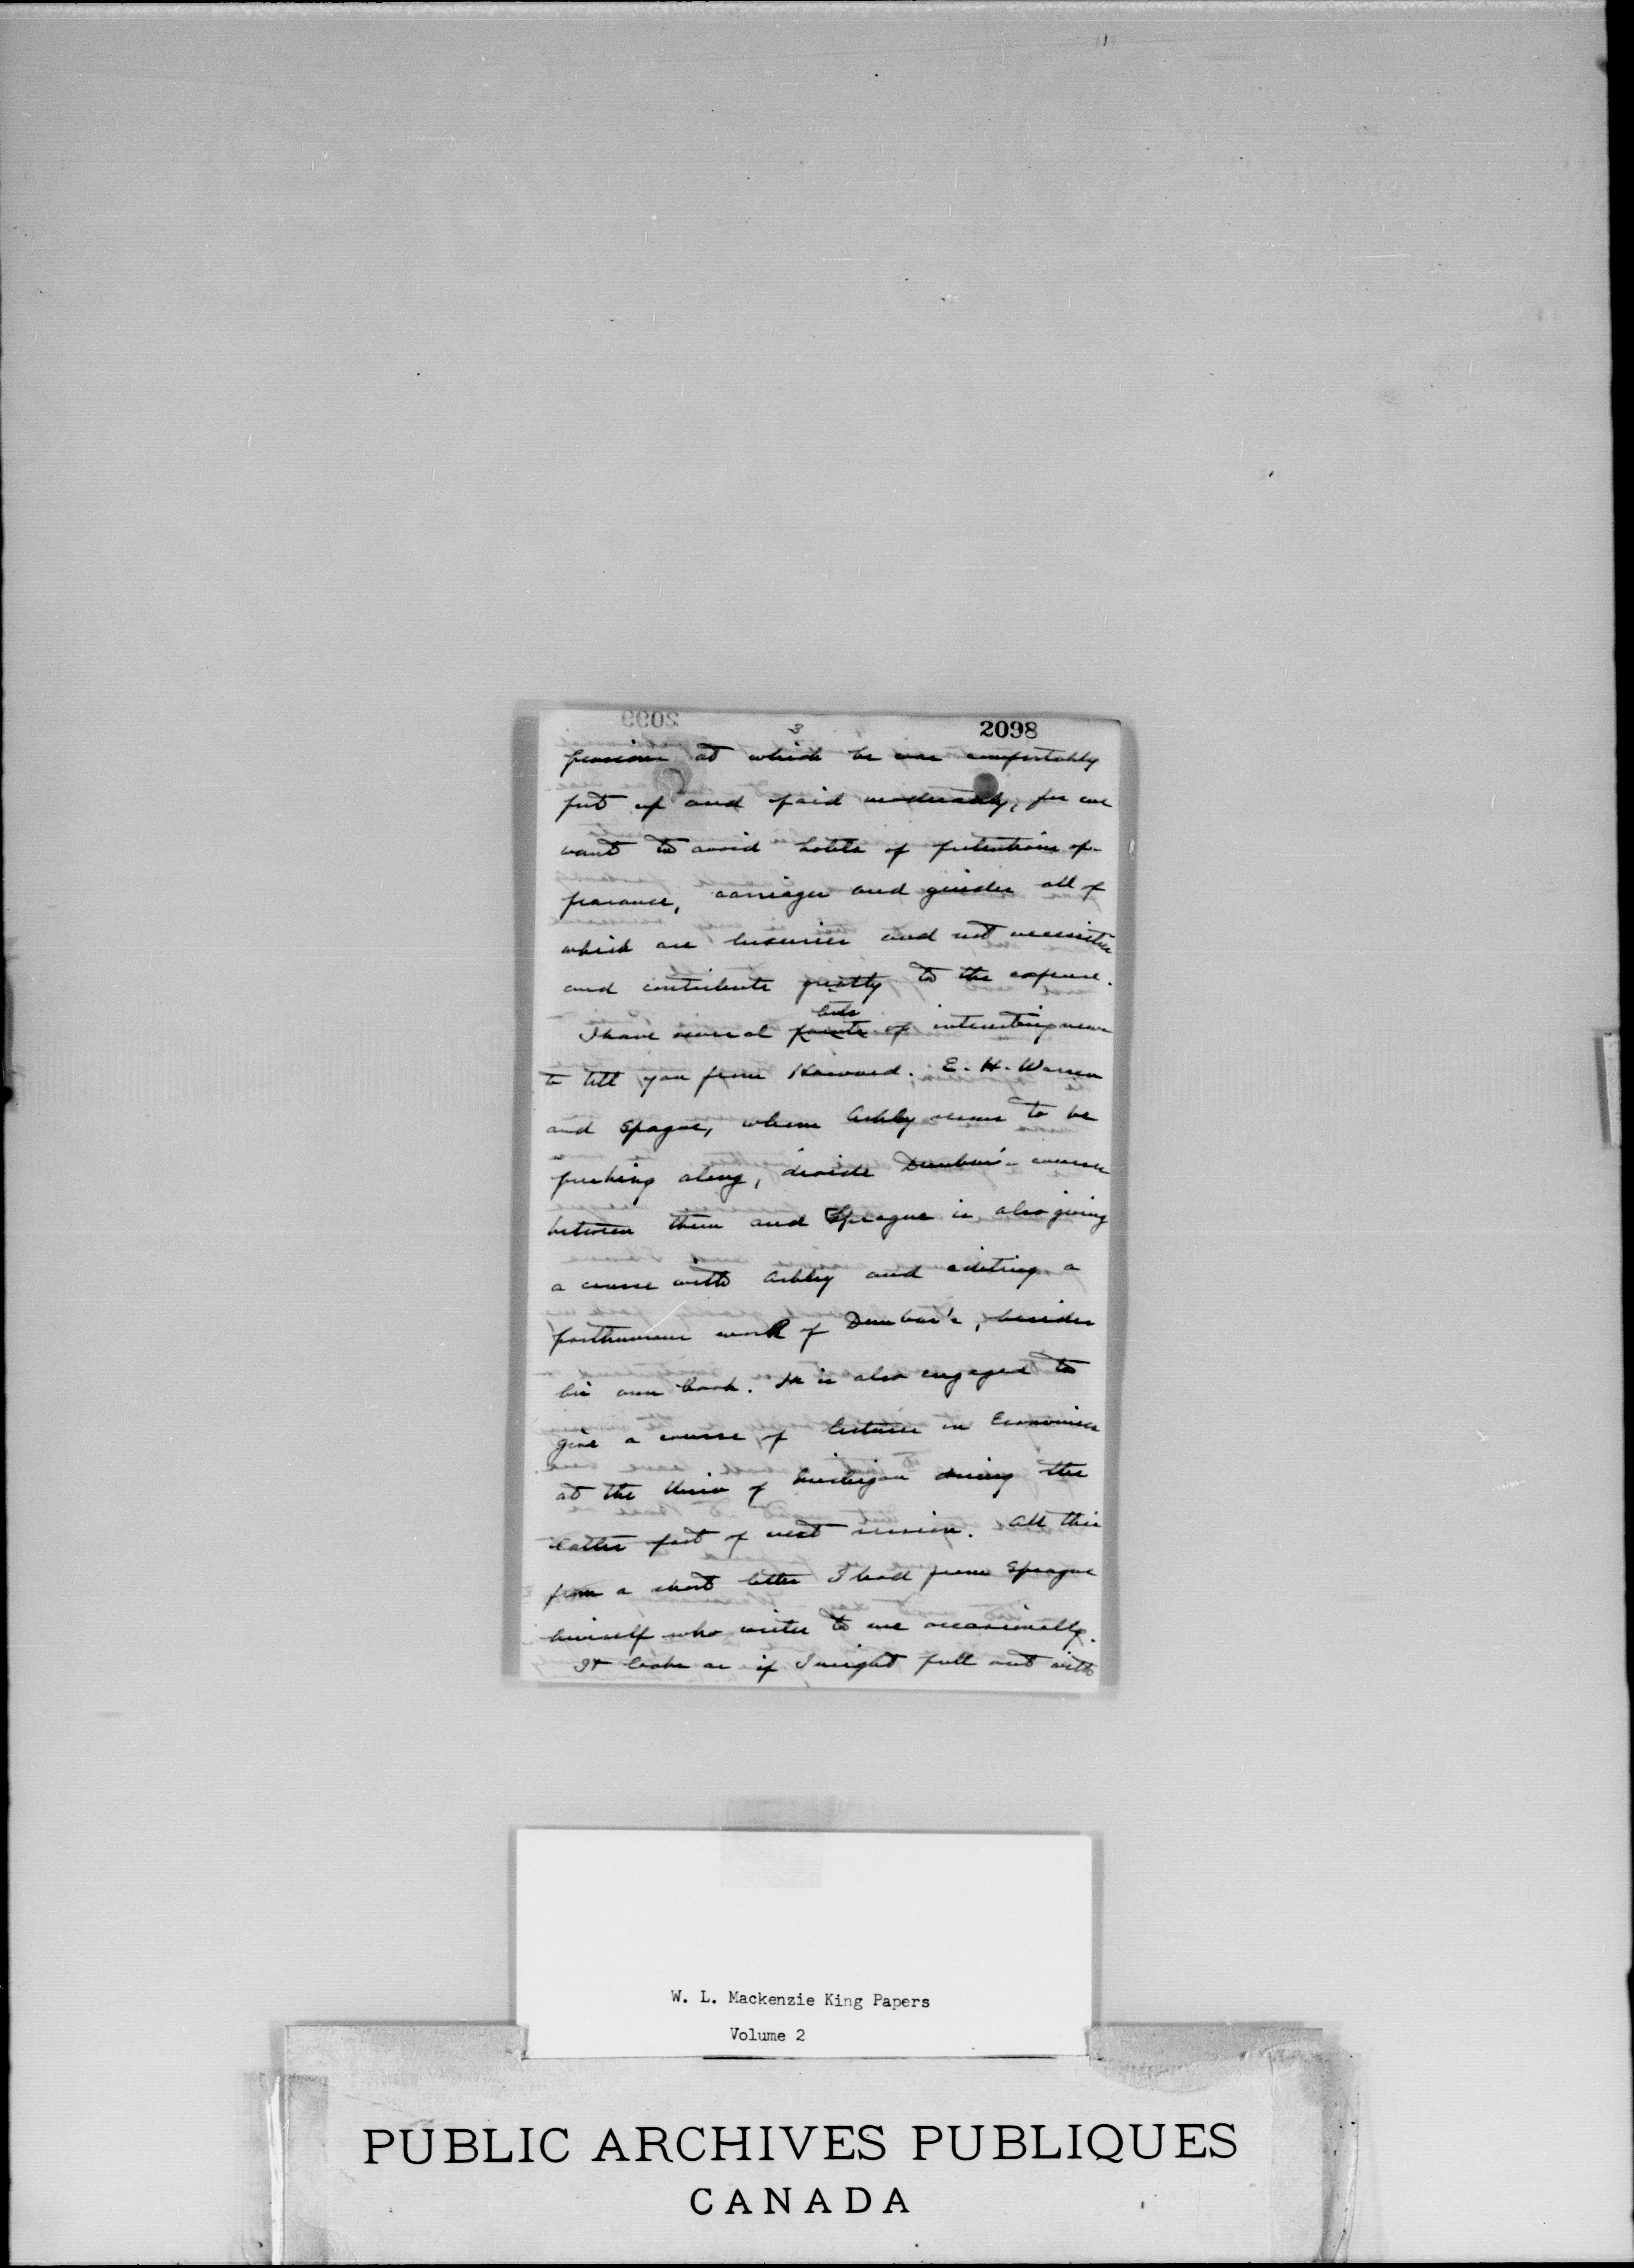 3
2098
pensions at which he was comfortably
put up and paid moderately, for we
want to avoid hotels of pretentious ap-
pearance, carriages and guides all of
which are luxuries and not necessities
and contribute greatly to the expense.
bits
I have several points of interesting news
to tell you from Harvard. E. H. Warren
and Spague, whom Ashley seems to be
pushing along, divide Dunbar's courses
between them and Sprague is also giving
a course with Ashley and editing a
posthumous work of Dunbar's, besides
his own book. He is also engaged to
give a course of lectures in Economics
at the Univ of Michigan during the
latter part of next session. All this
from a short letter I had from Sprague
himself who writes to me occasionally.
It looks as if I might pull out with
W. L. Mackenzie King Papers
Volume 2
PUBLIC ARCHIVES PUBLIQUES
CANADA